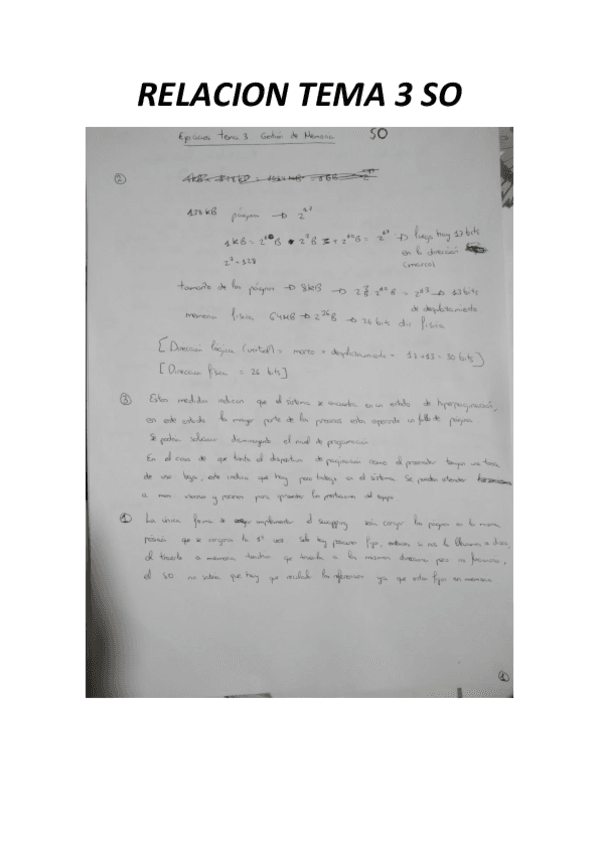 RELACION TEMA 3 SO
Ejercicios Tema 3 Gestión de Memoria SO
②
128kB páginas → 2¹⁷
1kB = 2¹⁰B · 2⁷B = 2¹⁷ → luego hay 17 bits
2⁷ = 128 en la dirección
(marco)
tamaño de las páginas → 8kB → 2³·2¹⁰B = 2¹³ → 13 bits
de desplazamiento
memoria física 64MB → 2²⁶B → 26 bits dir física
[Dirección lógica (virtual) = marco + desplazamiento = 17+13 = 30 bits]
[Dirección física = 26 bits]
③ Estas medidas indican que el sistema se encuentra en un estado de hiperpaginación,
en este estado la mayor parte de los procesos están esperando un fallo de página.
Se podría solucionar disminuyendo el nivel de programación.
En el caso de que tanto el dispositivo de paginación como el procesador tengan una tasa
de uso baja, esto indica que hay poco trabajo en el sistema. Se pueden atender
a mas usuarios y procesos para aprovechar las prestaciones del equipo.
① La única forma de implementar el swapping sería cargar las páginas en la misma
posición que se cargaron la 1ª vez solo hay posición fija, entonces si nos lo llevamos a disco,
el traerlo a memoria tendría que traerlo a las mismas direcciones pero no funciona,
el SO no sabría que hay que recalcular las referencias ya que están fijas en memoria
1